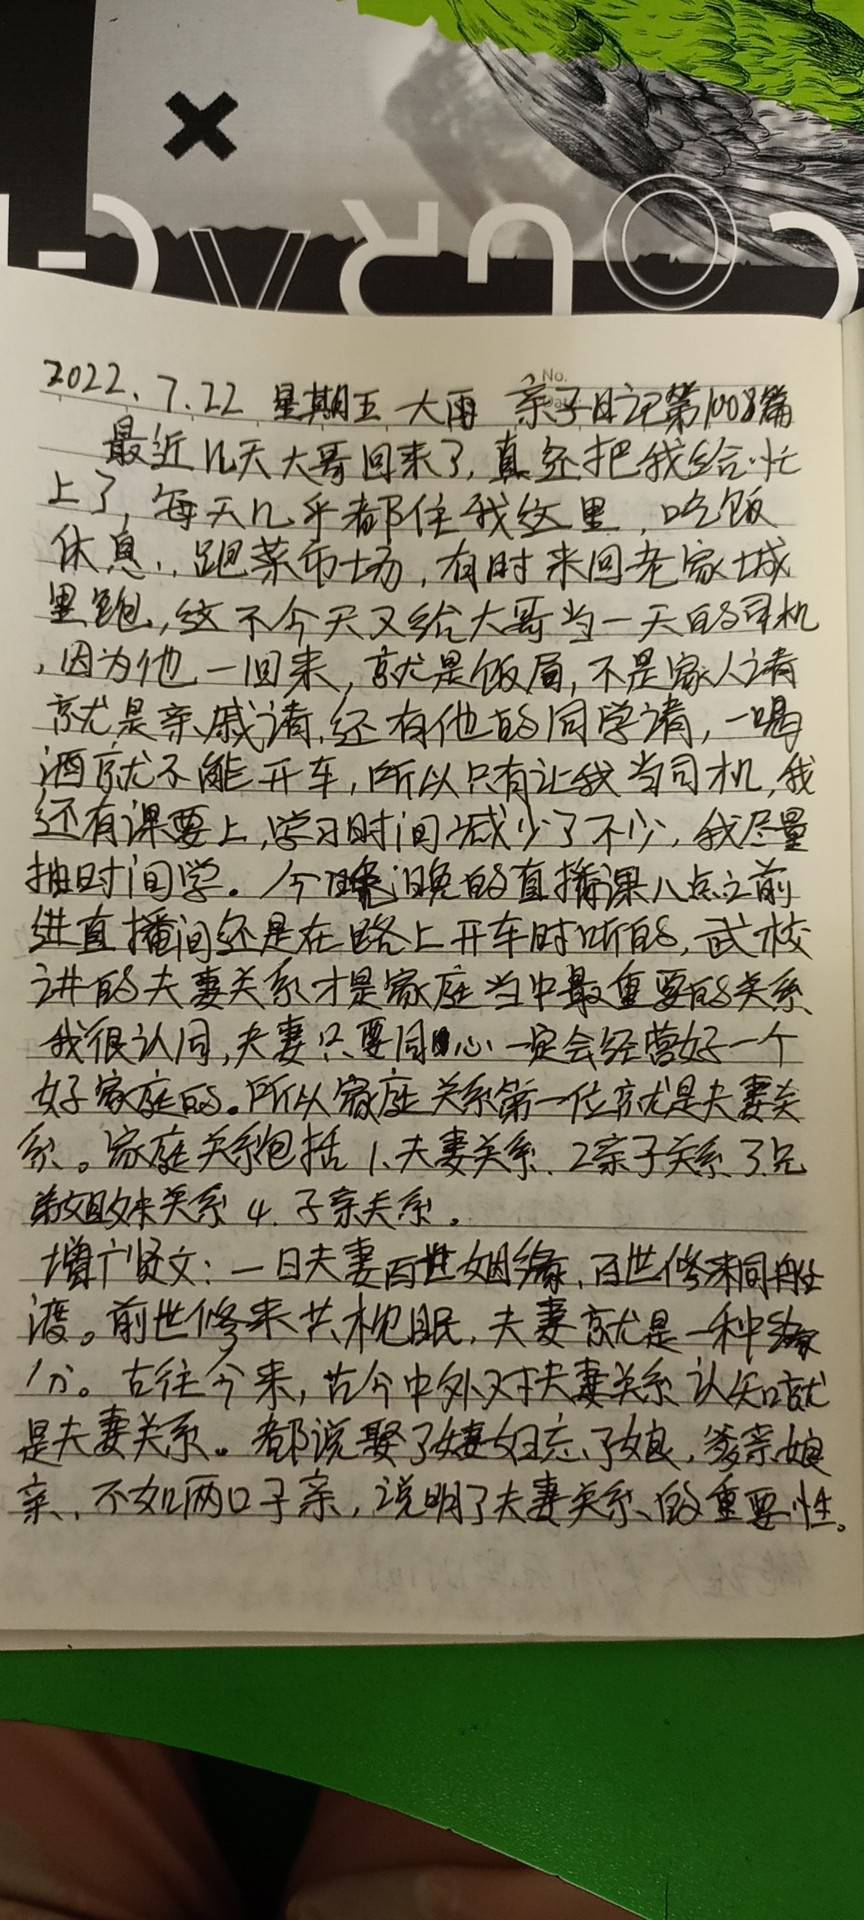 COURAG
No.
2022.7.22 星期五 大雨 亲子日记第1008篇
最近几天大哥回来了,真还把我给忙
上了,每天几乎都住我这里,吃饭
休息,跑菜市场,有时来回老家城
里跑,这不今天又给大哥当一天的司机
,因为他一回来,就是饭局,不是家人请
就是亲戚请,还有他的同学请,一喝
酒就不能开车,所以只有让我当司机,我
还有课要上,学习时间减少了不少,我尽量
抽时间学。今晚的直播课八点之前
进直播间还是在路上开车时听的,武校
讲的夫妻关系才是家庭当中最重要的关系
我很认同,夫妻只要同心一定会经营好一个
好家庭的。所以家庭关系第一位就是夫妻关
系。家庭关系包括1、夫妻关系、2亲子关系3.兄
弟姐妹关系4.子亲关系。
增广贤文:一日夫妻百世姻缘,百世修来同船
渡。前世修来共枕眠,夫妻就是一种缘
份。古往今来,古今中外对夫妻关系认知就
是夫妻关系。都说娶了媳妇忘了娘,爹亲娘
亲,不如两口子亲,说明了夫妻关系的重要性。